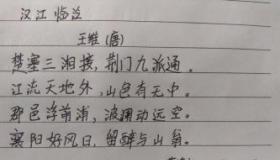 汉江临泛
王维(唐)
楚塞三湘接,荆门九派通。
江流天地外,山色有无中。
郡邑浮前浦,波澜动远空。
襄阳好风日,留醉与山翁。